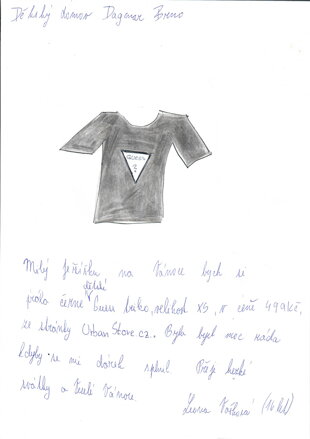 Dětský domov Dagmar Brno
GUESS
?
Milý Ježíšku na Vánoce bych si
přála černé dětské Guess triko, velikost XS, v ceně 499kč,
ze stránky Urban Store.cz. Byla bych moc ráda
kdyby se mi dárek splnil. Přeji hezké
svátky a Veselé Vánoce.
Leona (16 let)